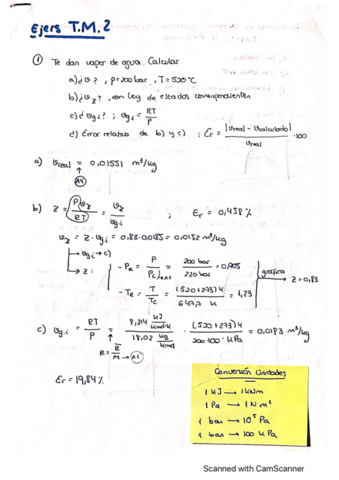 Ejers T.M.2
① Te dan vapor de agua. Calcular
a) ¿v?, P=200bar, T=520ºC
b) ¿v_z?, con Ley de estados correspondientes
c) ¿v_g.i?; v_g.i = RT/P
d) Error relativo de b) y c); Er = |vreal - vcalculado| / vreal · 100
a) vreal = 0,01551 m³/kg
A4
b) Z = P v_z / RT = v_z / v_g.i ; Er = 0,458 %
v_z = Z · v_g.i = 0,83 · 0,0185 = 0,0152 m³/kg
v_g.i → c)
Z: - P_R = P / P_c)A1 = 200 bar / 220 bar = 0,905
gráfica → Z = 0,83
- T_R = T / T_c = (520+273) K / 647,3 K = 1,23
c) v_g.i = RT / P = 8,314 kJ/kmol·K / 18,02 kg/kmol · (520+273) K / 200·100 · KPa = 0,0183 m³/kg
R = R̄ / M → A1
Er = 19,84 %
Conversión Unidades
1 KJ → 1 KNm
1 Pa → 1 N m²
1 bar → 10⁵ Pa
1 bar → 100 KPa
Scanned with CamScanner